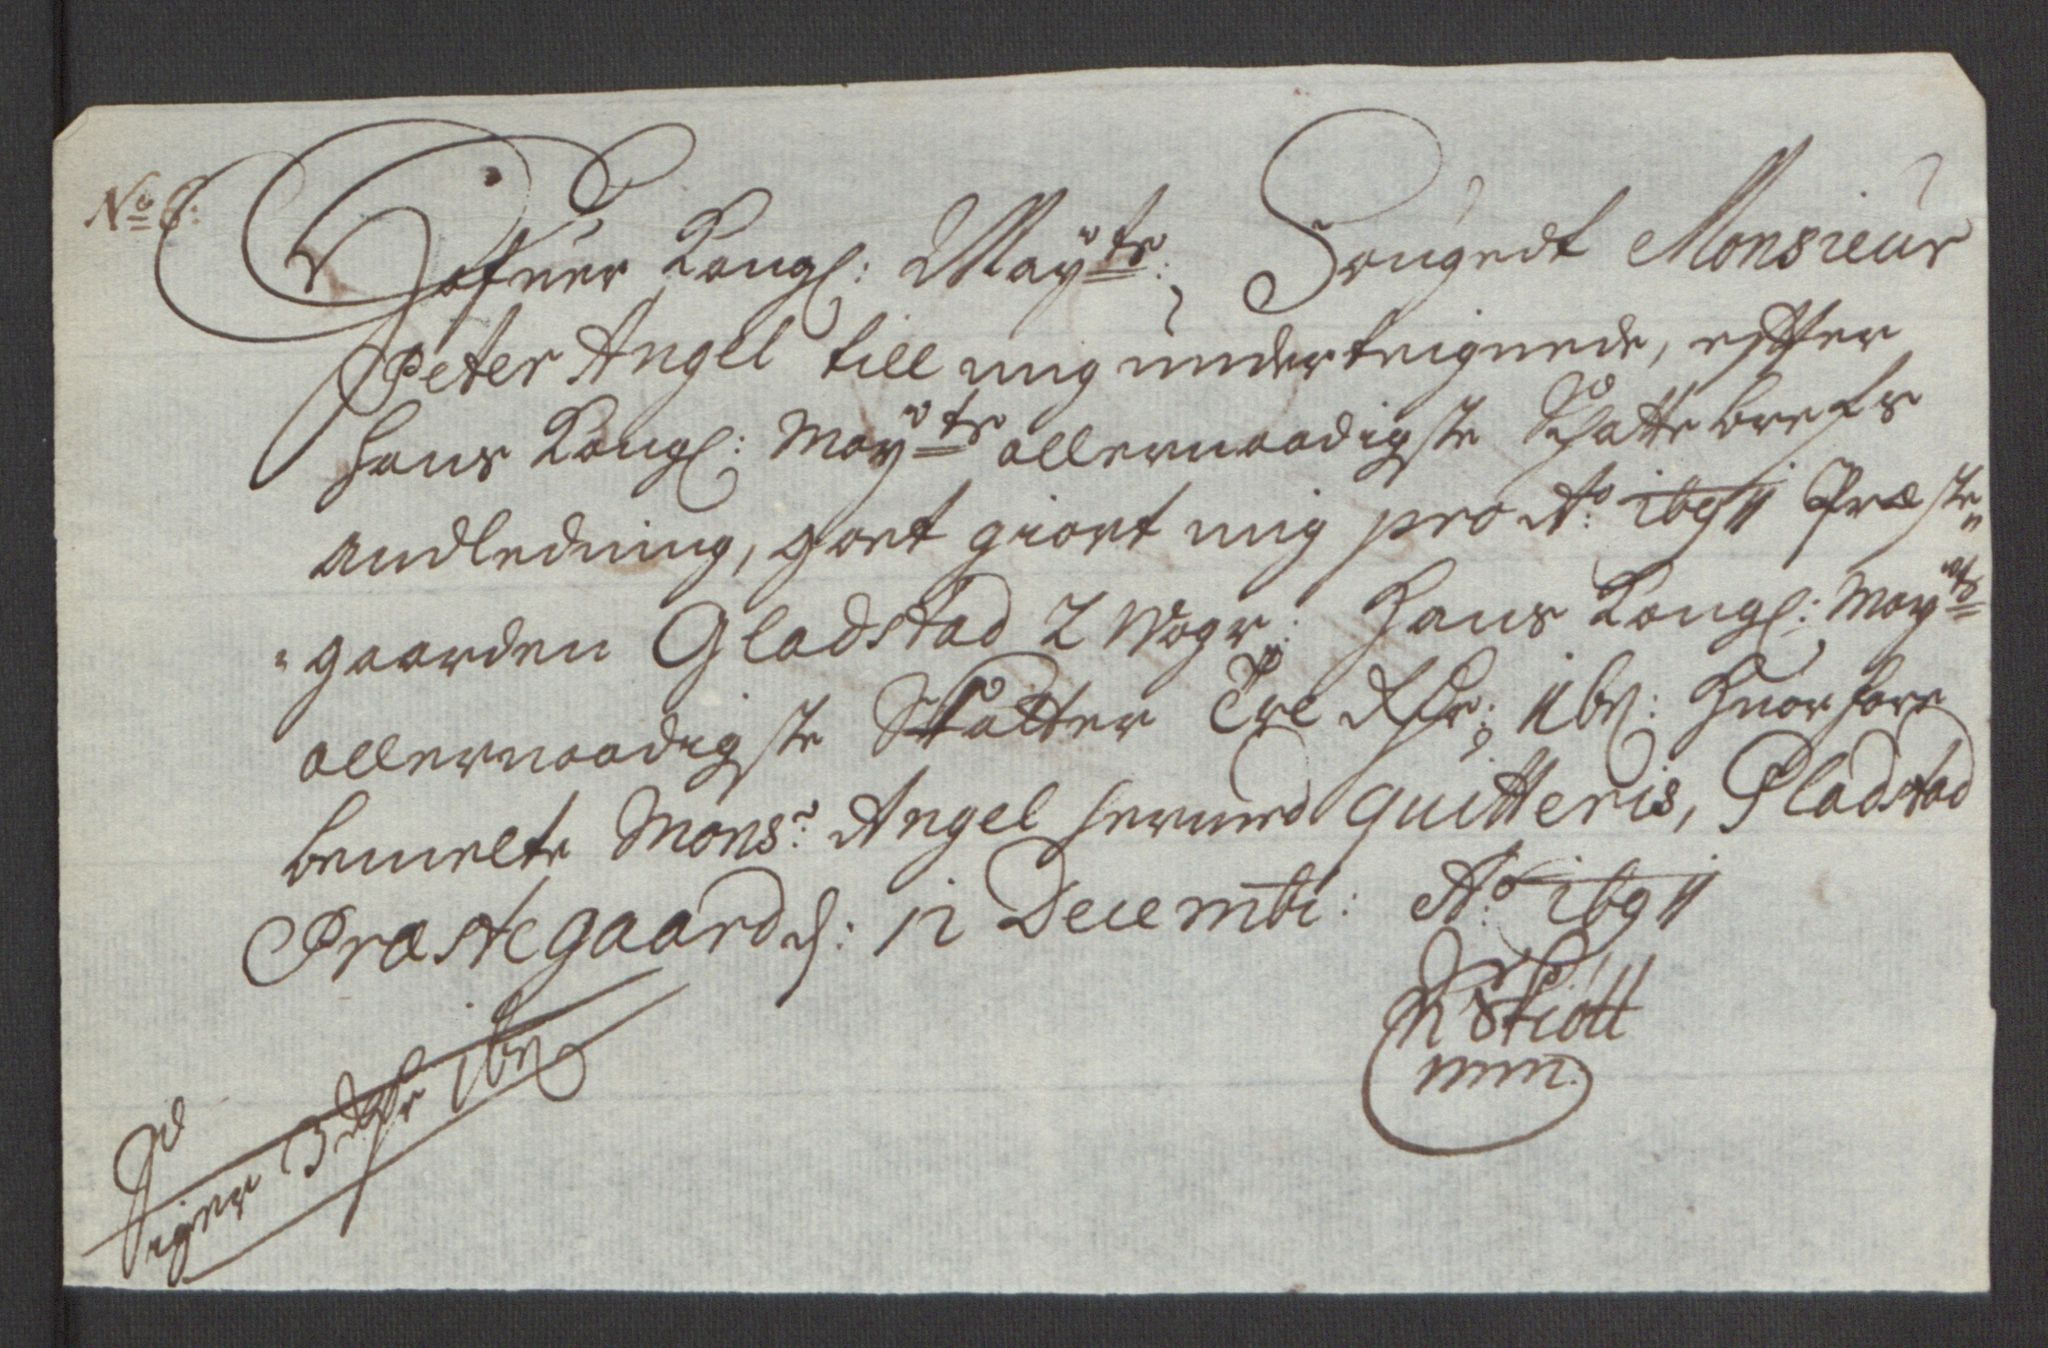 No
Hafuer Kongl: Mayts: Fougedt Monsieur
Peter Angel till mig underteignede, effter
hans Kongl: Mayts allernaadigste Schatte brefs
Andledning, goet giort mig pro Ao: 1694 Præste„
„gaarden Gladstad 2 Wogr: Hans Kongl: Mayts
allernaadigste Skatter Tre Rdr: 16 s: Huorfore
bemelte Monsr: Angel hermed quitteris, Gladstad
Præstegaard d: 12 Decembr: Ao: 1694
Skiött
mm.
Siger 3 Rdr 16 s